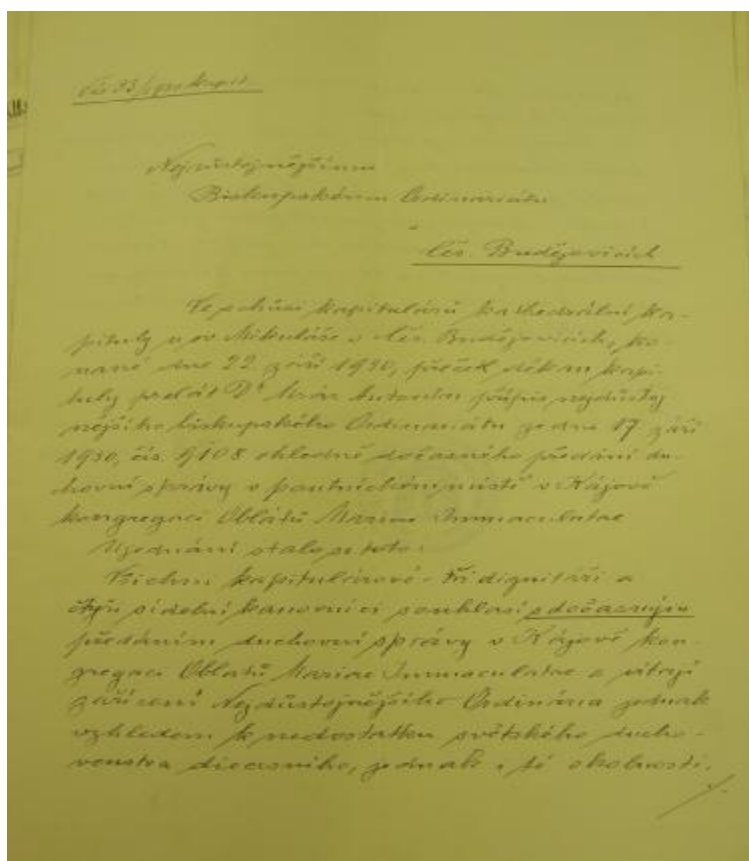 Nejdůstojnějšímu
Biskupskému Ordinariátu
v
Čes. Budějovicích
Ve schůzi kapitulárů kathedrální ka-
pituly u sv. Mikuláše v Čes. Budějovicích, ko-
nané dne 22. září 1930, přečetl děkan kapi-
tuly prelát Dr Antonín přípis nejdůstoj
nejšího biskupského Ordinariátu ze dne 17 září
1930, čís. 9108 ohledně dočasného předání du-
chovní správy v poutnickém místě v Kájově
kongregaci Oblátů Mariae Immaculatae
Ujednání stalo se toto:
Všichni kapitulárové - tři dignitáři a
čtyři sídelní kanovníci souhlasí s dočasným
předáním duchovní správy v Kájově kon-
gregaci Oblátů Mariae Immaculatae a vítají
zařízení Nejdůstojnějšího Ordinária jednak
vzhledem k nedostatku světského ducho-
venstva diecesního, jednak z té okolnosti,